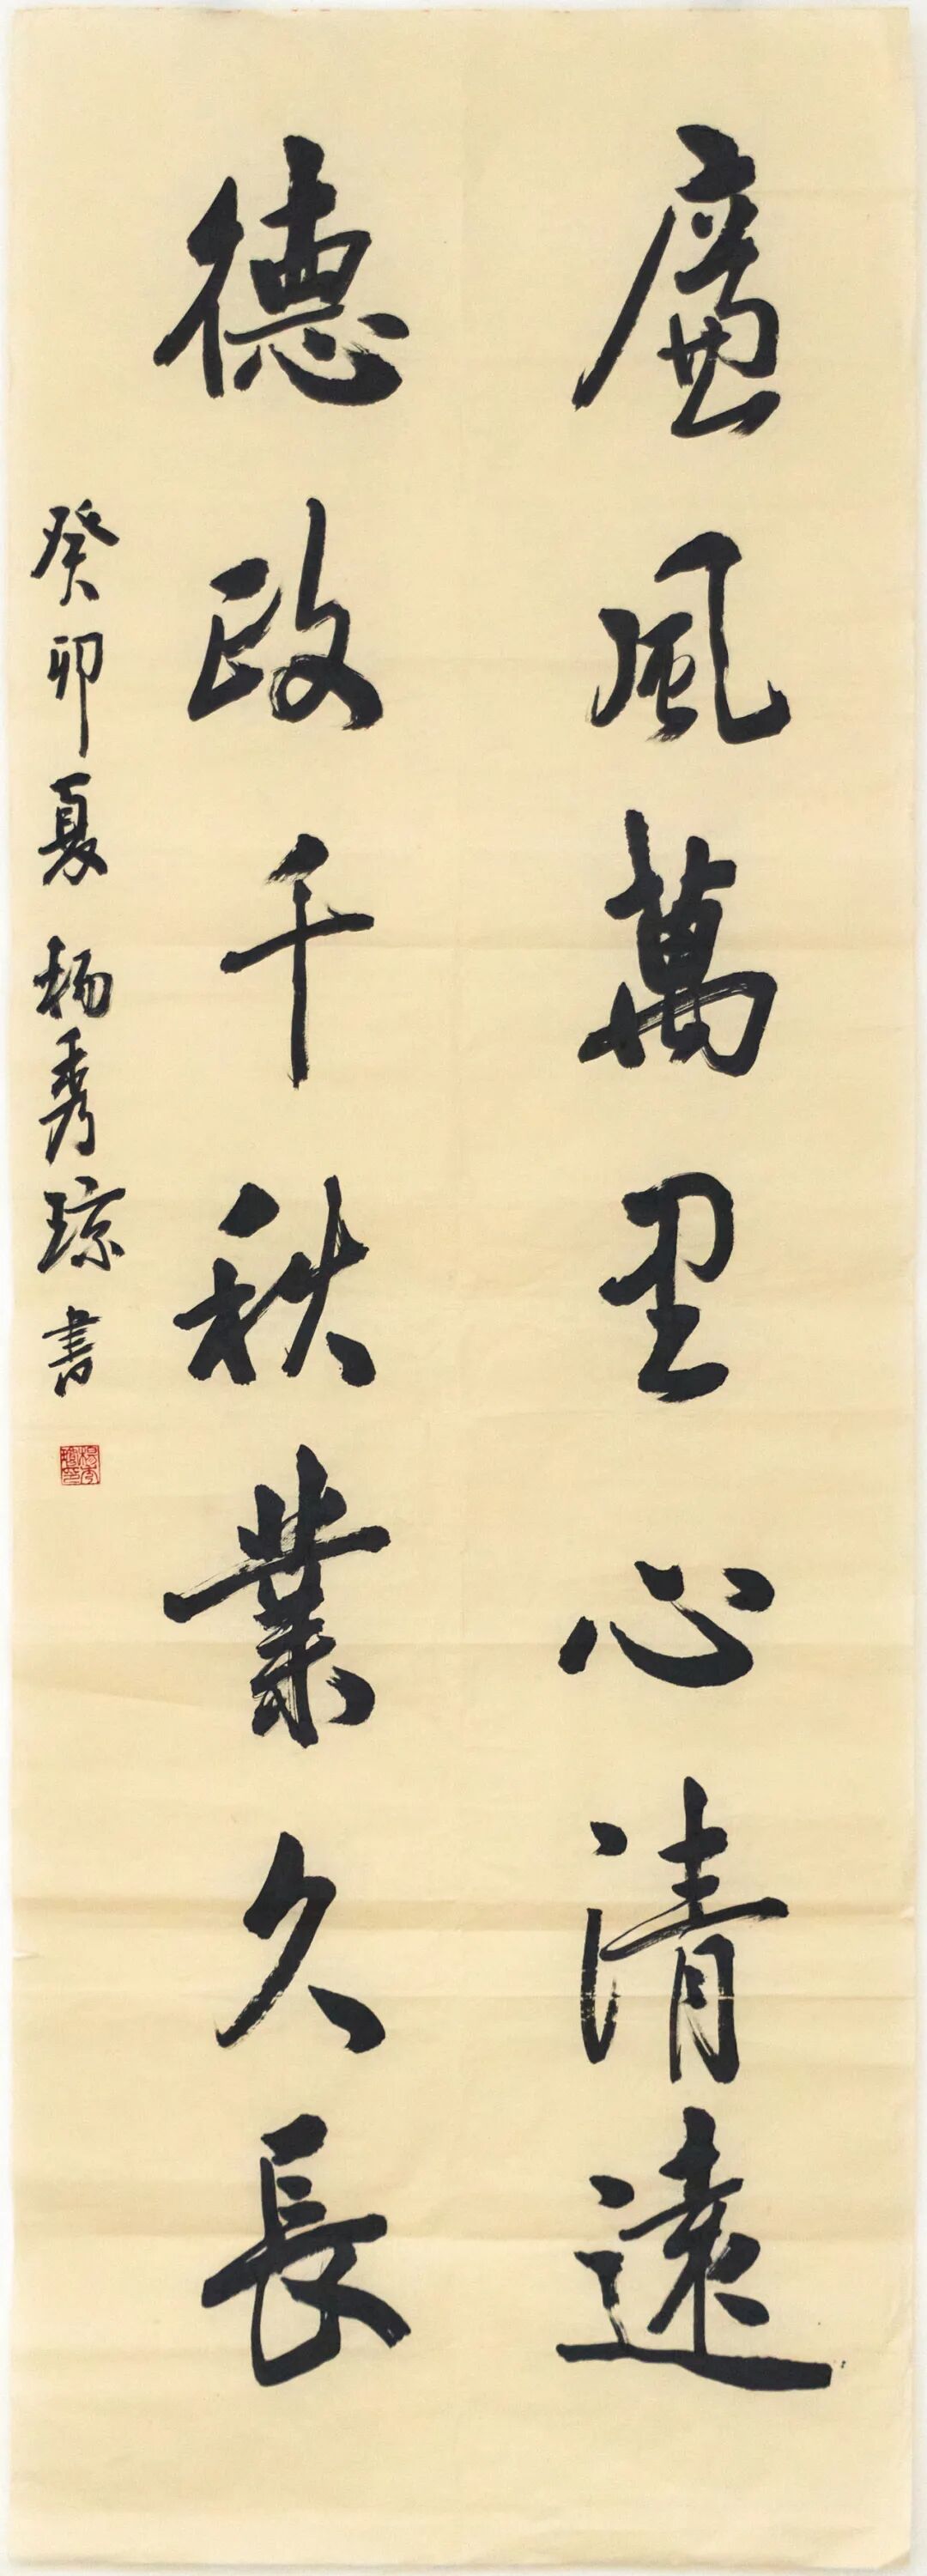 廉風萬里心清遠
德政千秋業久長
癸卯夏 楊秀琼書